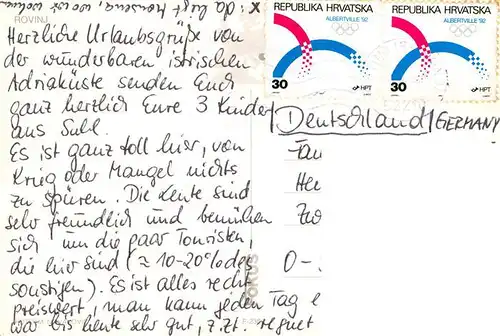 x: da liegt Rovinj, wo ist
ROVINJ
REPUBLIKA HRVATSKA
ALBERTVILLE '92
30
HPT
REPUBLIKA HRVATSKA
ALBERTVILLE '92
30
HPT
Herzliche Urlaubsgrüße von
der wunderbaren istrischen
Adriaküste senden Euch
ganz herzlich Eure 3 Kinder
aus Suhl.
Es ist ganz toll hier, von
Krieg oder Mangel nichts
zu spüren. Die Leute sind
sehr freundlich und bemühen
sich um die paar Touristen,
die hier sind (≈ 10-20% der
sonstigen). Es ist alles recht
preiswert, man kann jeden Tag e
war bis heute sehr gut, z.zt. regnet
Deutschland/GERMANY
Fam
Her
Zw
O-